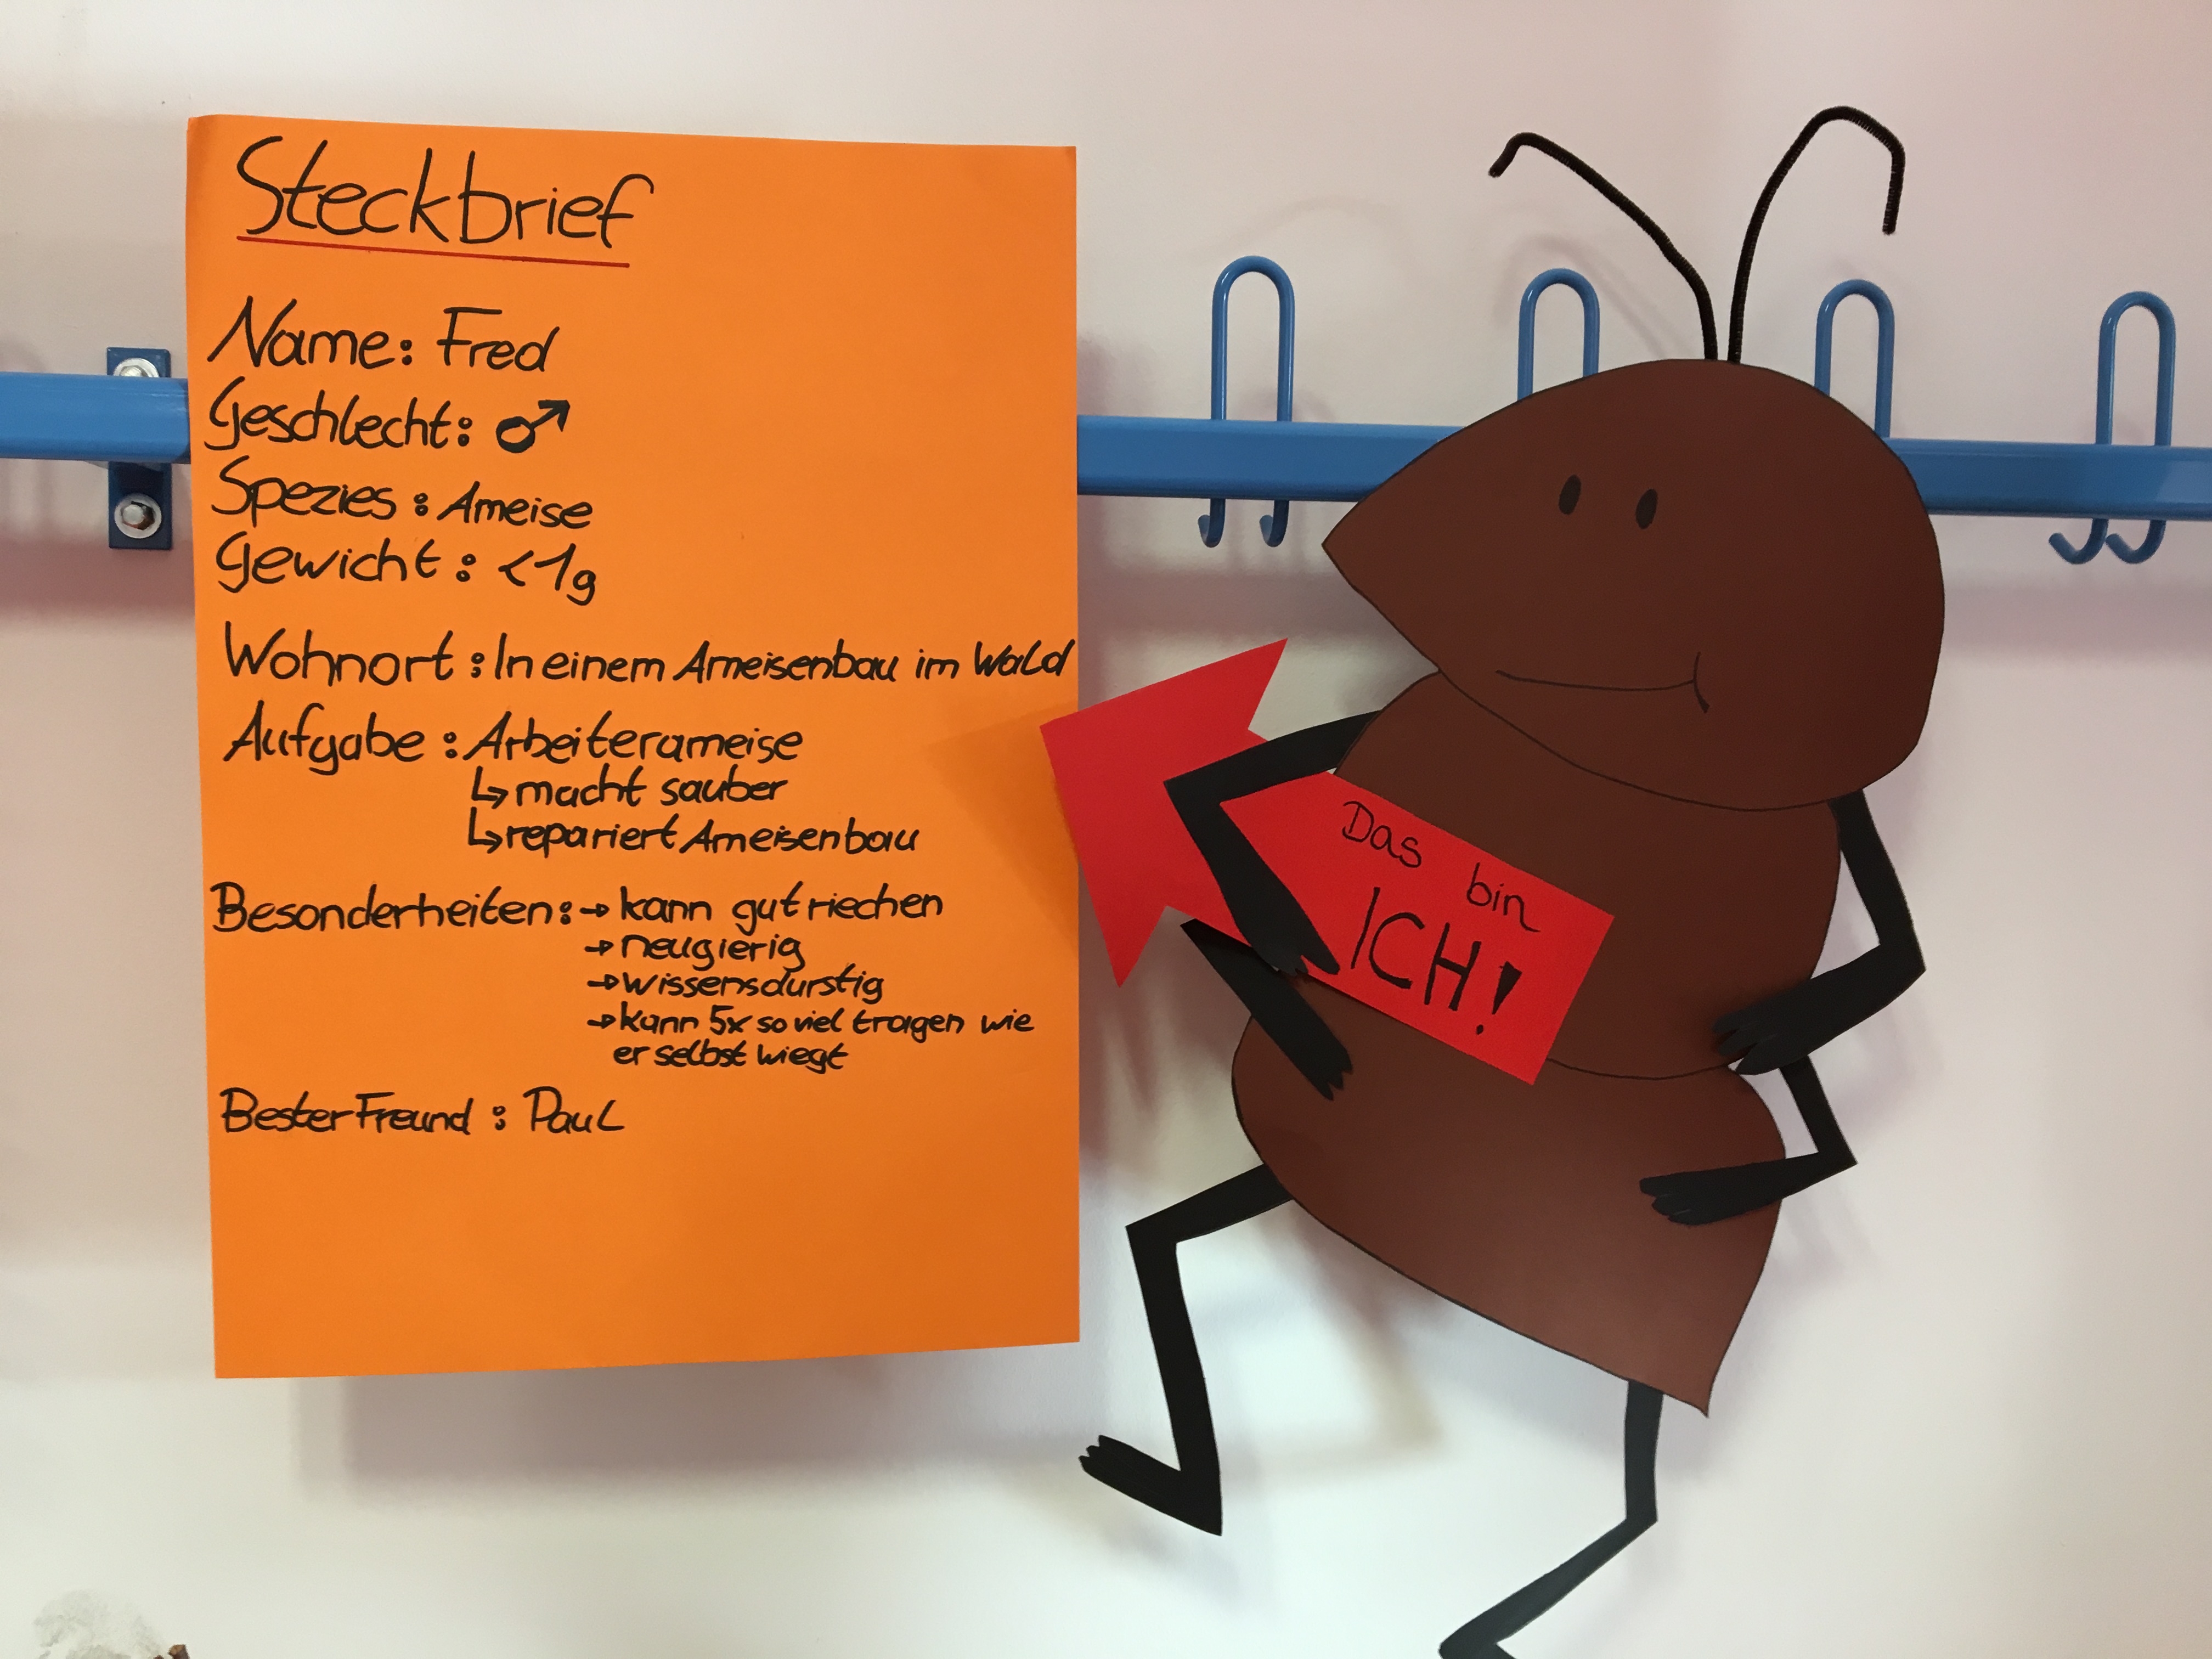 Steckbrief
Name: Fred
Geschlecht: ♂
Spezies: Ameise
Gewicht: <1g
Wohnort: In einem Ameisenbau im Wald
Aufgabe: Arbeiterameise
↳ macht sauber
↳ repariert Ameisenbau
Besonderheiten: → kann gut riechen
→ neugierig
→ wissensdurstig
→ kann 5x so viel tragen wie
er selbst wiegt
Bester Freund: Paul
Das bin
ICH!